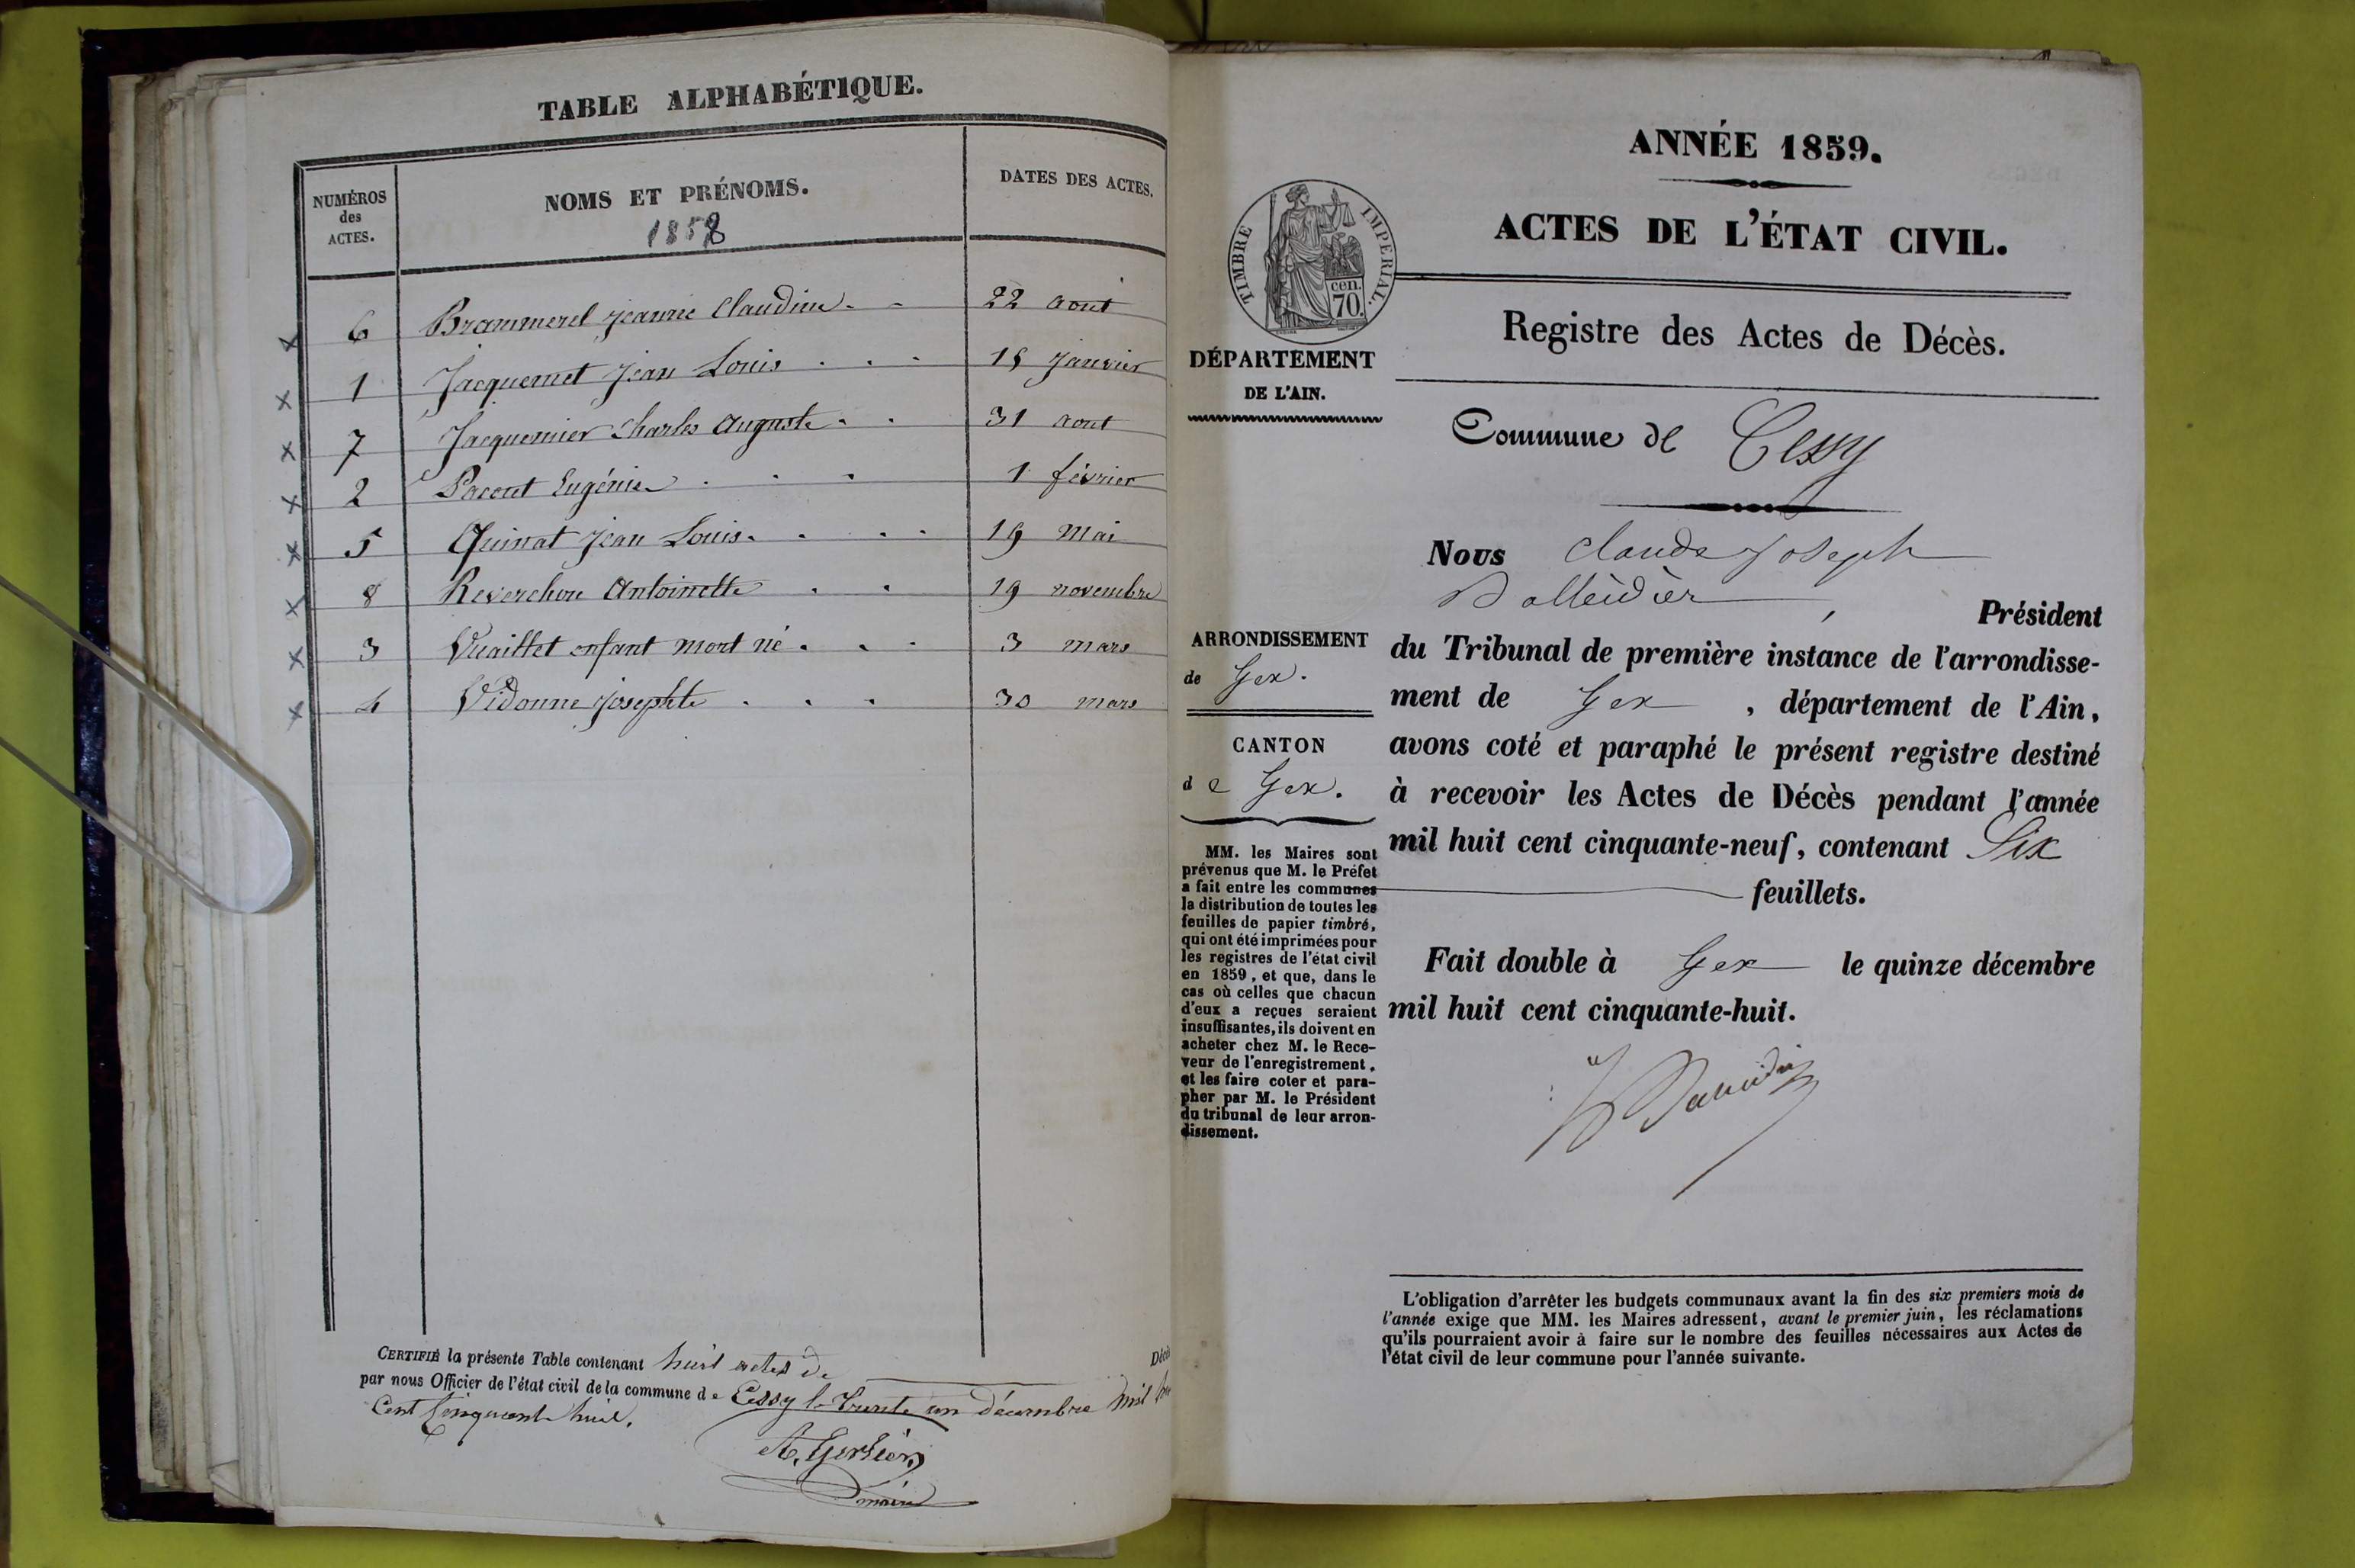 TABLE ALPHABÉTIQUE.
NUMÉROS
des
ACTES.
NOMS ET PRÉNOMS.
1858
DATES DES ACTES.
6 Brammerel Jeanne Claudine 22 aout
1 Jacquemet Jean Louis 15 janvier
7 Jacquemier Charles Auguste 31 aout
2 Eugénie 1 février
5 Quinat Jean Louis 19 mai
8 Reverchon Antoinette 19 novembre
3 Vuaillet enfant mort né 3 mars
4 Vidonne Josephte 30 mars
CERTIFIÉ la présente Table contenant huit actes de Décès
par nous Officier de l'état civil de la commune de Cessy le Trente un décembre mil
Cent Cinquante huit.
maire
ANNÉE 1859.
ACTES DE L'ÉTAT CIVIL.
TIMBRE IMPÉRIAL.
cen.
70.
Registre des Actes de Décès.
DÉPARTEMENT
DE L'AIN.
Commune de Cessy
Nous Claude Joseph
Président
du Tribunal de première instance de l'arrondisse-
ment de Gex , département de l'Ain,
avons coté et paraphé le présent registre destiné
à recevoir les Actes de Décès pendant l'année
mil huit cent cinquante-neuf, contenant Six
feuillets.
Fait double à Gex le quinze décembre
mil huit cent cinquante-huit.
ARRONDISSEMENT
de Gex.
CANTON
de Gex.
MM. les Maires sont
prévenus que M. le Préfet
a fait entre les communes
la distribution de toutes les
feuilles de papier timbré,
qui ont été imprimées pour
les registres de l'état civil
en 1859, et que, dans le
cas où celles que chacun
d'eux a reçues seraient
insuffisantes, ils doivent en
acheter chez M. le Rece-
veur de l'enregistrement,
et les faire coter et para-
pher par M. le Président
du tribunal de leur arron-
dissement.
L'obligation d'arrêter les budgets communaux avant la fin des six premiers mois de
l'année exige que MM. les Maires adressent, avant le premier juin, les réclamations
qu'ils pourraient avoir à faire sur le nombre des feuilles nécessaires aux Actes de
l'état civil de leur commune pour l'année suivante.